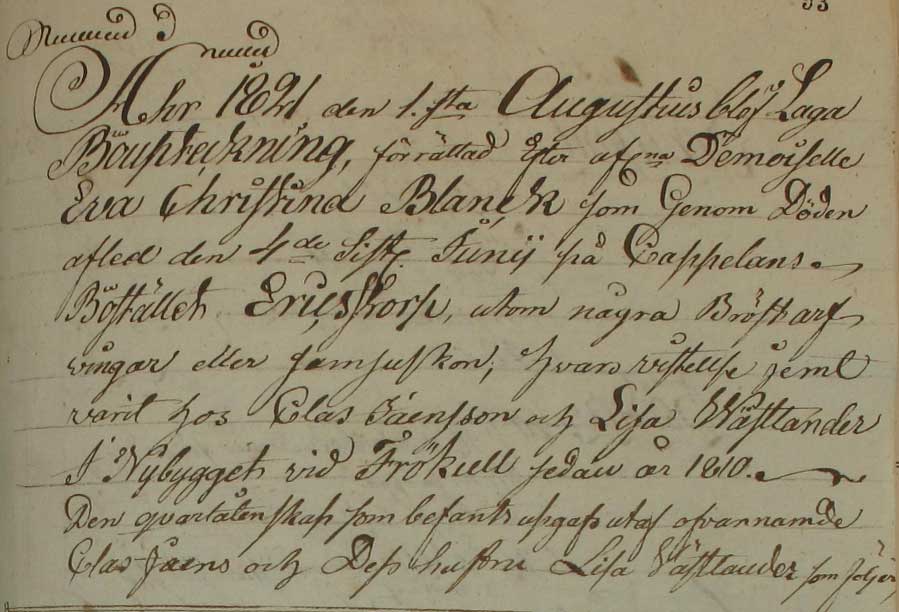 53
Ahr 1821 den 1.sta Augustius blef Laga
Bouptekning, förrättad Efter afne Demoiselle
Eva Christina Blanck som Genom Döden
afled den 4de Siste Junij på Cappelans
Bostället Ericsstorp, utom några Bröst arf
vingar eller samsuskon, hvars vistelse jemt
varit hos Clas Jaensson och Lisa Wästlander
I Nybygget vid Frökiell sedan år 1810.
Den qvarlåtenskap som befants upgafs utaf ofvannamde
Clas Jaens och Dess hustru Lisa Västlander som följer,